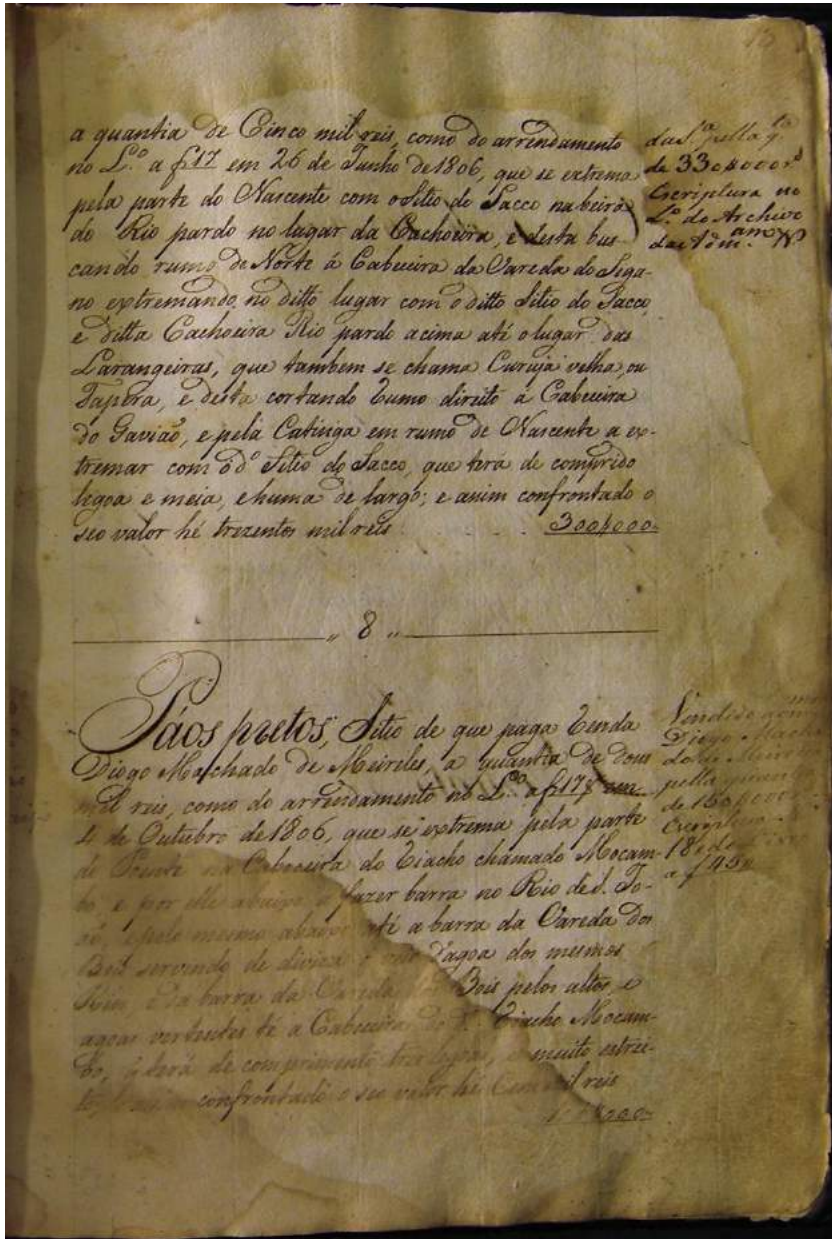 15
a quantia de Cinco mil reis, como do arrendamento
no L.º a f 17 em 26 de Junho de 1806, que se extrema
pela parte do Nascente com o Sitio do Sacco na beira
do Rio pardo no lugar da Cachoeira, e desta bus-
cando rumo de Norte á Cabeceira da Vareda do Siga-
no extremando no ditto lugar com o ditto Sitio do Sacco
e ditta Cachoeira Rio pardo acima até o lugar das
Larangeiras, que tambem se chama Curuja velha, ou
Tapera, e desta cortando Rumo direito á Cabeceira
do Gavião, e pela Catinga em rumo de Nascente a ex-
tremar com o d.º Sitio do Sacco, que terá de comprido
legoa e meia, e huma de largo; e assim confrontado o
seo valor hé trezentos mil reis 300$000
pella q.ta
de 330$000 r.s
Escriptura no
L.º do Archivo
da Adm.am N
" 8 "
Páos pretos, Sitio de que paga Renda
Diogo Machado de Meireles, a quantia de dous
mil reis, como do arrendamento no L.º a f 17 em
4 de Outubro de 1806, que se extrema pela parte
do Poente na Cabeceira do Riacho chamado Mocam-
bo, e por elle abaixo a fazer barra no Rio de S. Jo-
ão, e pelo mesmo abaixo até a barra da Vareda dos
Bois servindo de diviza Lagoa dos mesmos
Bois, e da barra da Vareda dos Bois pelos altos, e
agoas vertentes té a Cabeceira do Riacho Mocam-
bo, q terá de comprimento tres legoas, e muito estrei-
to, confrontado o seo valor hé Cem mil reis
100$000
Vendido
Diogo Macha-
do de Meireles
pella quantia
de 150$000
Escriptura
18
a f 45